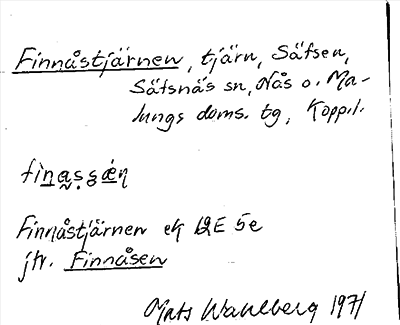 Finnåstjärnen, tjärn, Säfsen,
Säfsnäs sn, Nås o. Ma-
lungs doms. tg, Kopp.l.
Finnåstjärnen ek 12E 5e
jfr. Finnåsen
Mats Wahlberg 1971